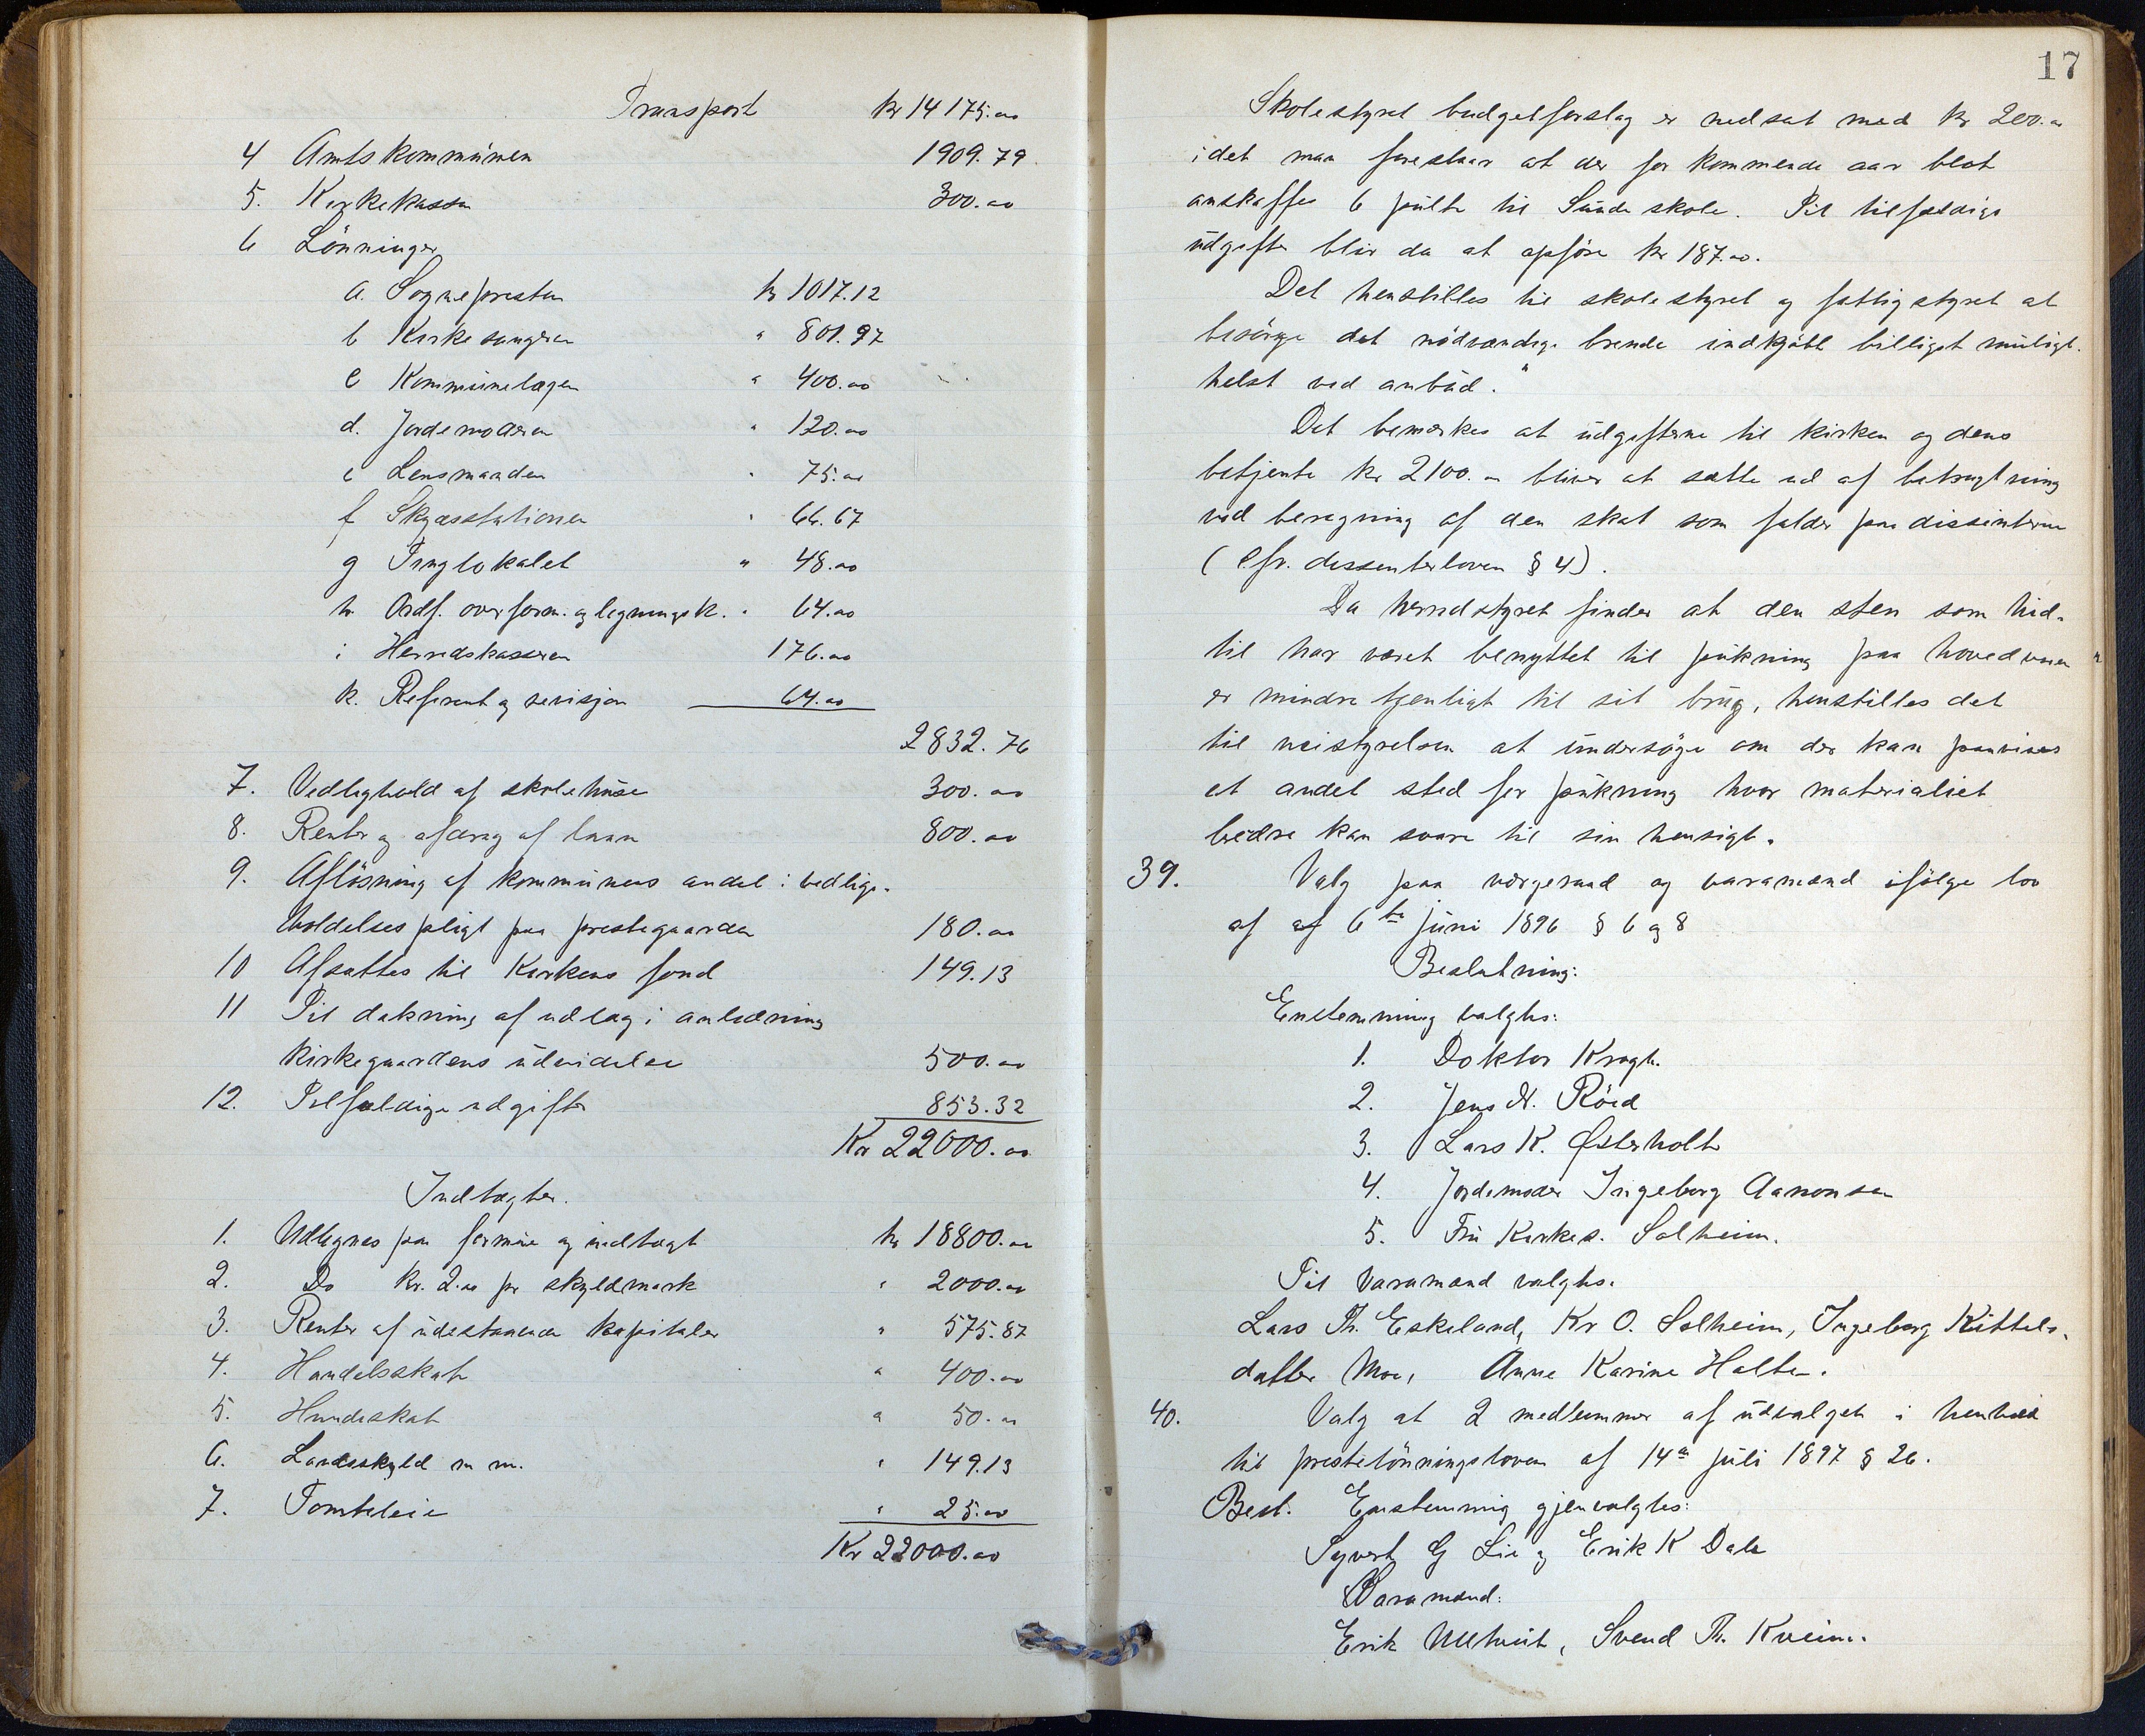 Transport kr 14175.00
4 Amtskommunen 1909.79
5. Kirkekassen 300.00
6 Lönninger
a. Sognepresten kr 1017.12
b Kirkesangeren " 801.97
c Kommunelægen " 400.00
d. Jordemoderen " 120.00
e Lensmanden " 75.00
f Skydsstationen " 66.67
g Tinglokalet " 48.00
h. Ordf. overform. og ligningsk. " 64.00
i Herredskasseren 176.00
k. Referent og revisjon 64.00
2832.76
7. Vedlighold af skolehuse 300.00
8. Renter og afdrag af laan 800.00
9. Aflösning af kommunens andel i vedlige-
holdelses pligt paa prestegaarden 180.00
10 Afsættes til Kirkens fond 149.13
11 Til dækning af udlæg i anledning
kirkegaardens udvidelse 500.00
12. Tilfældige udgifter 853.32
Kr 22000.00
Indtægter.
1. Udlignes paa formue og indtægt kr 18800.00
2. Do kr. 2.00 pr skyldmark " 2000.00
3. Renter af udestaaende kapitaler " 575.87
4. Handelsskat " 400.00
5. Hundeskat " 50.00
6. Landskyld m m. " 149.13
7. Tomteleie " 25.00
Kr 22000.00
17
Skolestyret budgetforslag er nedsat med kr 200.00
idet man foreslaar at der for kommende aar blot
anskaffes 6 pulte til Sunde skole. Til tilfældige
udgifter blir da at opføre kr 187.00.
Det henstilles til skolestyret og fattigstyret at
besörge det nödvændige brende indkjöbt billigst muligt.
helst ved anbud."
Det bemærkes at udgifterne til kirken og dens
betjente kr 2100.00 bliver at sætte ud af betragtning
ved beregning af den skat som falder paa dissenterne
(Cfr. dissenterloven § 4).
Da herredstyret finder at den sten som hid-
til har været benyttet til pukning paa hovedveien "
er mindre tjenligt til sit brug, henstilles det
til veistyrelsen at undersöge om der kan paavises
et andet sted for pukning hvor materialiet
bedre kan svare til sin hensigt.
39. Valg paa værgeraad og varamænd ifölge lov
af af 6te juni 1896 § 6 og 8
Beslutning:
Enstemming valgtes:
1. Doktor Kragh.
2. Jens N. Röed
3. Lars K. Østerholt
4. Jordemoder Ingeborg Aanonsen
5. Fru Kirkes. Solheim.
Til Varamænd valgtes.
Lars Th. Eskeland, Kr O. Solheim, Ingeborg Kittels-
datter Moe, Anne Karine Holte.
40. Valg at 2 medlemmer af udvalget i henhold
til prestelönningsloven af 14de juli 1897 § 26.
Besl. Enstemmig gjenvalgtes:
Syvert G Lie og Erik K Dale
Varamænd:
Erik Ulltveit, Svend Th. Kveim.